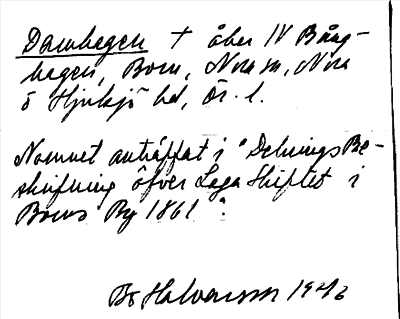 Damhagen † åker IV Bång-
hagen, Born, Nora sn, Nora
o Hjulsjö hd, Ör. l.
Namnet anträffat i "Delnings Be-
skrifning öfver Laga Skiftet i
Borns By 1861".
Bo Halvarsson